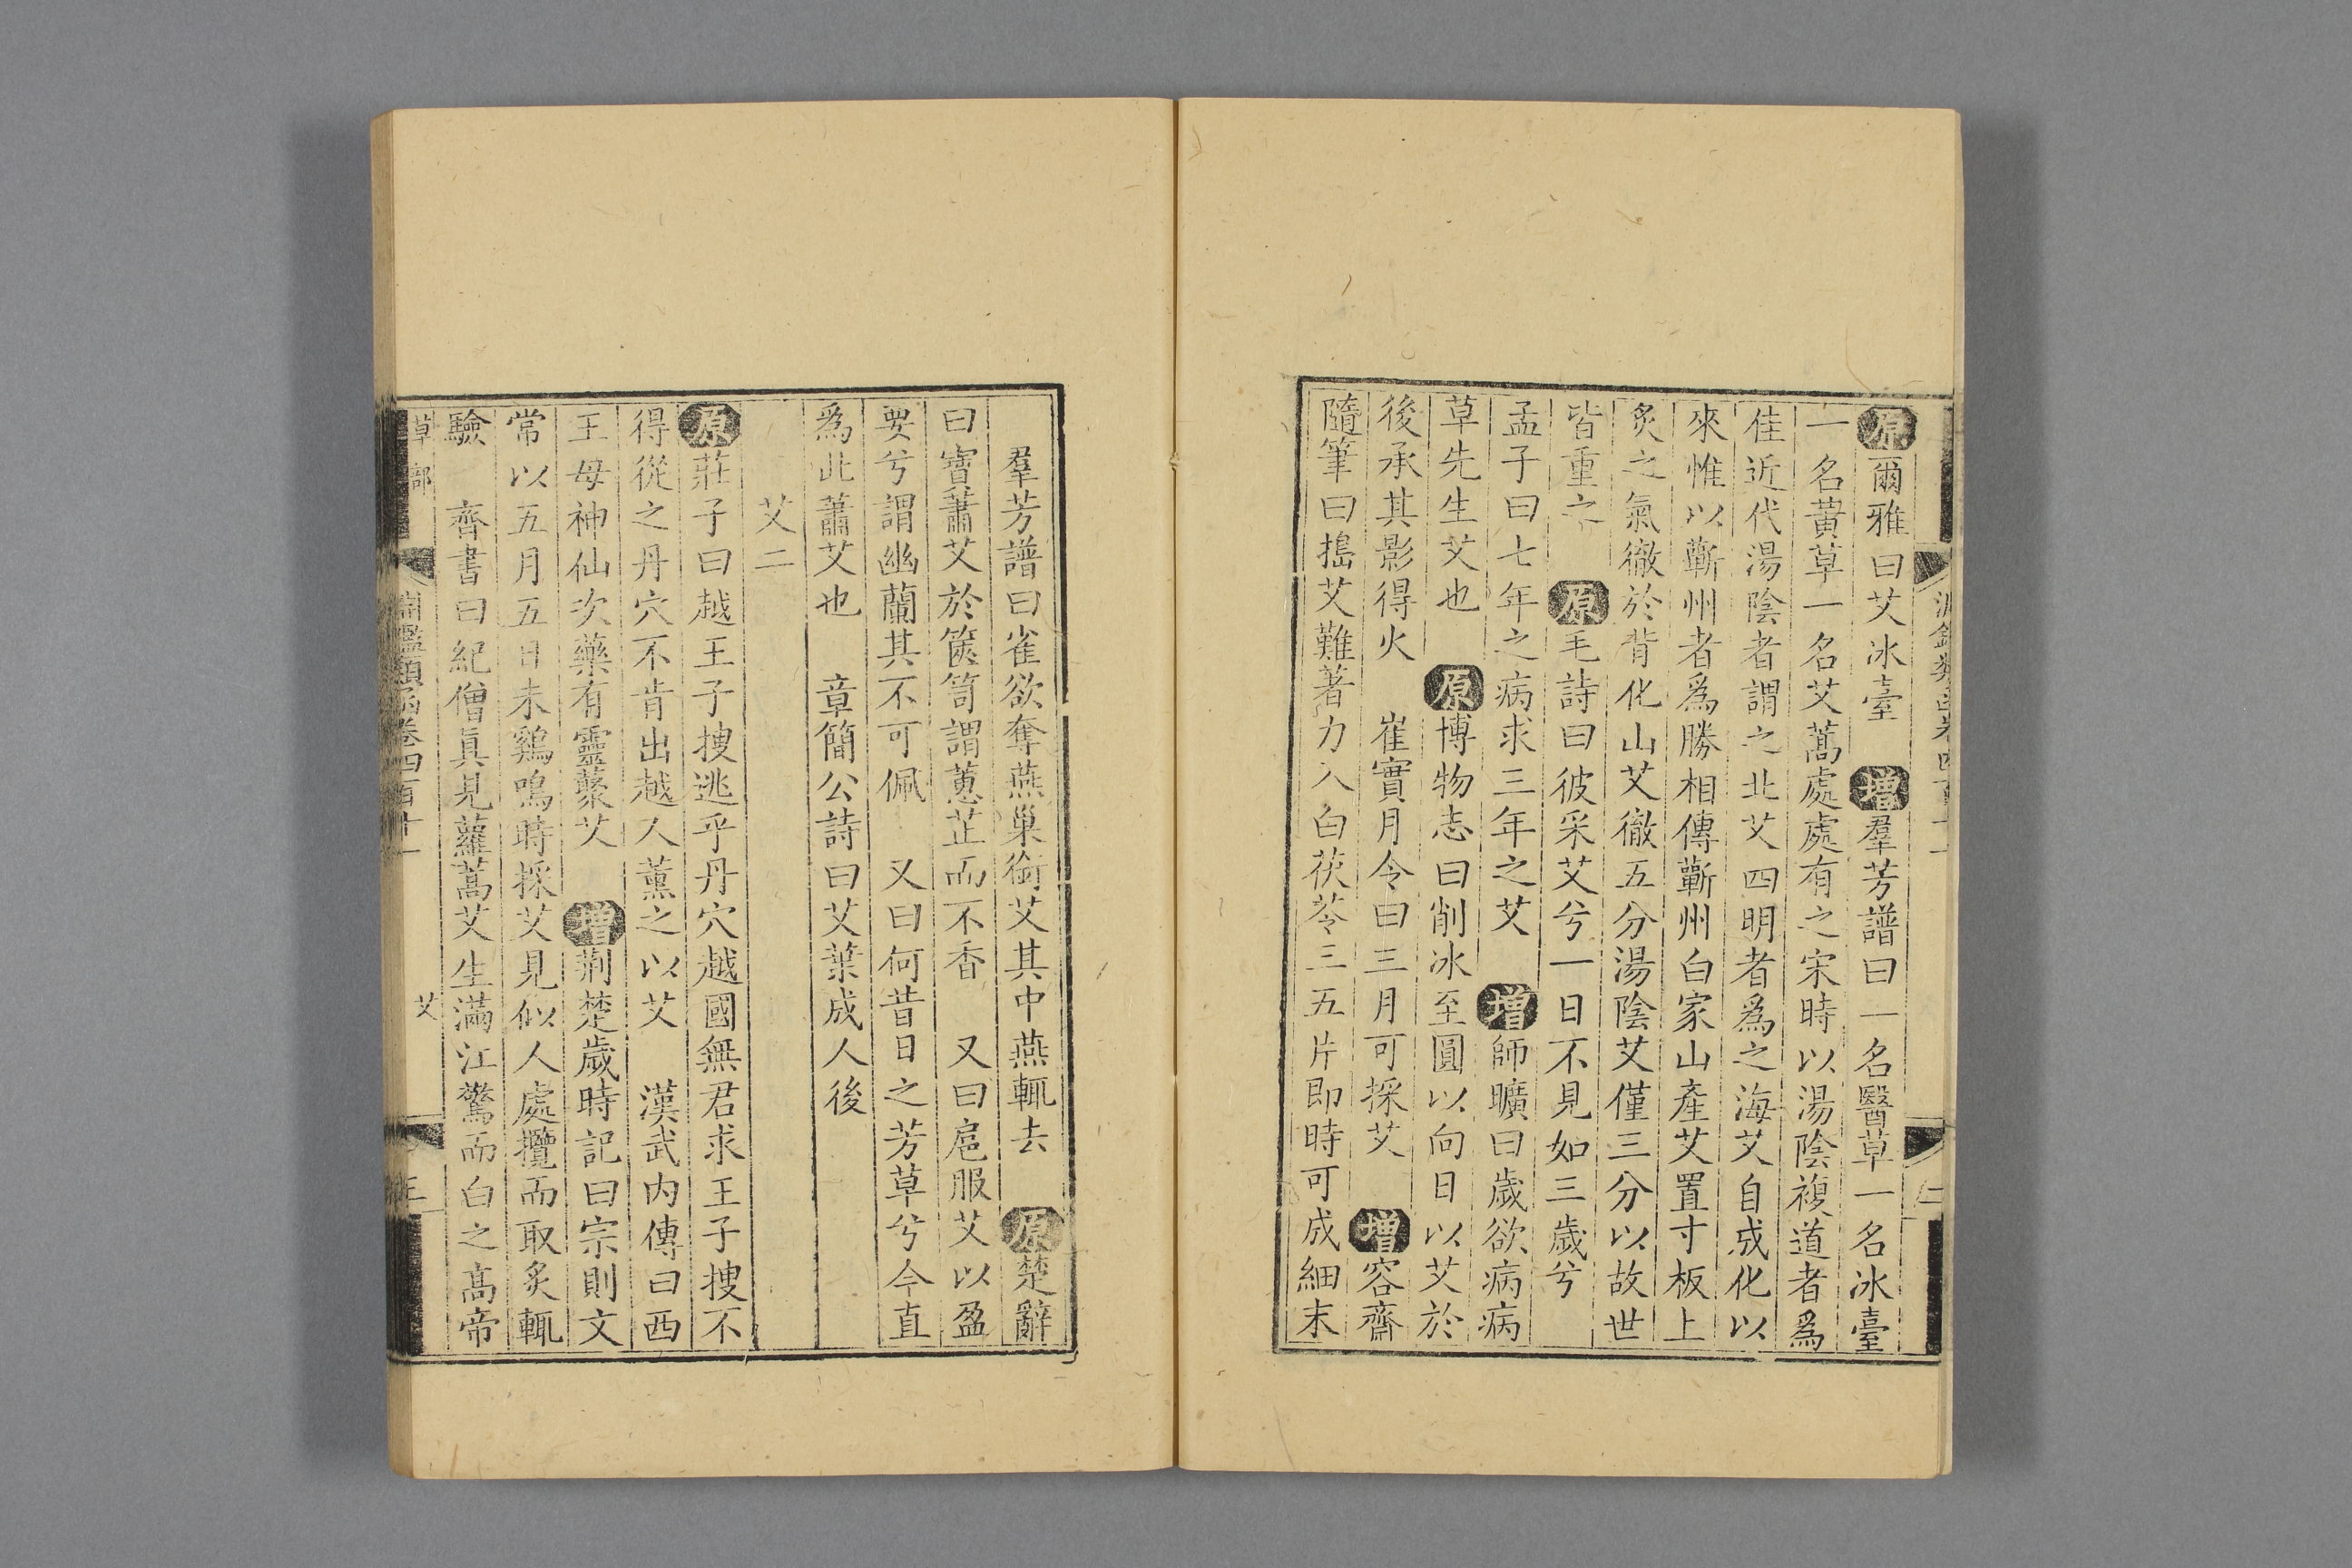 原爾雅曰艾冰臺　增羣芳譜曰一名醫草一名冰臺
一名黃草一名艾蒿處處有之宋時以湯陰複道者爲
佳近代湯陰者謂之北艾四明者爲之海艾自成化以
來惟以蘄州者爲勝相傳蘄州白家山產艾置寸板上
炙之氣徹於背化山艾徹五分湯陰艾僅三分以故世
皆重之　原毛詩曰彼采艾兮一日不見如三歲兮
孟子曰七年之病求三年之艾　增師曠曰歲欲病病
草先生艾也　原博物志曰削冰至圓以向日以艾於
後承其影得火　崔實月令曰三月可採艾　增容齋
隨筆曰搗艾難著力入白茯苓三五片即時可成細末
羣芳譜曰雀欲奪燕巢銜艾其中燕輒去　原楚辭
曰寶蕭艾於篋笥謂蕙芷而不香　又曰扈服艾以盈
要兮謂幽蘭其不可佩　又曰何昔日之芳草兮今直
爲此蕭艾也　章簡公詩曰艾葉成人後
艾二
原莊子曰越王子搜逃乎丹穴越國無君求王子搜不
得從之丹穴不肯出越人薰之以艾　漢武內傳曰西
王母神仙次藥有靈藂艾　增荆楚歲時記曰宗則文
常以五月五日未鷄鳴時採艾見似人處攬而取炙輒
驗　齊書曰紀僧眞見蘿蒿艾生滿江驚而白之高帝
草部　淵鑑類函卷四百十一　艾　三